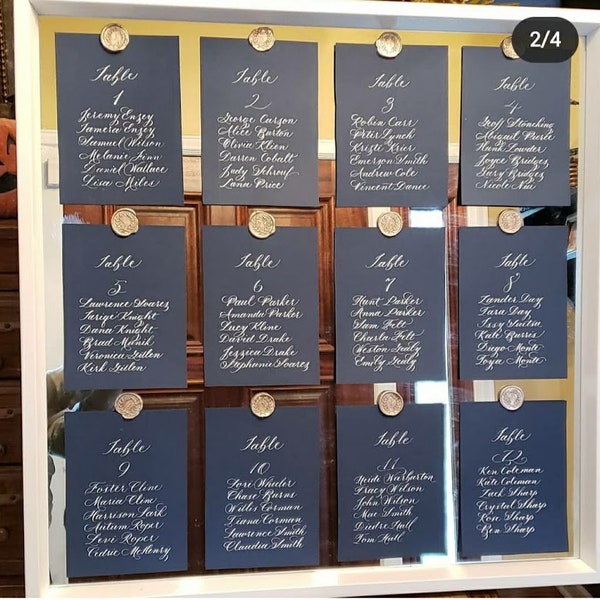 2/4
Table
1
Jeremy Enzey
Tamera Enzey
Samuel Wilson
Melanie Finn
Daniel Wallace
Lisa Miles
Table
2
George Carson
Alice Burton
Olivia Kleen
Darren Cobalt
Judy
Lana Price
Table
3
Robin Carr
Peter Lynch
Kristi Krier
Emerson Smith
Andrew Cole
Vincent Dance
Table
4
Geoff
Abigail Pierce
Hank Lowder
Joyce Bridges
Gary Bridges
Nicole Nue
Table
5
Lawrence Soares
Knight
Dana Knight
Brad
Veronica
Kirk
Table
6
Paul Parker
Amanda Parker
Lucy Kline
David Drake
Jessica Drake
Stephanie Soares
Table
7
Hunt Parker
Anna Parker
Sam Felt
Charla Felt
Weston Sealy
Emily Sealy
Table
8
Xander Day
Tara Day
Issy
Kate Burris
Diego Monte
Toya Monte
Table
9
Foster Cline
Maria Cline
Harrison Park
Autum Roper
Levi Roper
Cedric McHenry
Table
10
Lori Whaler
Chase Burns
Willis Corman
Diana Corman
Lawrence Smith
Claudia Smith
Table
11
Heidi Warburton
Tracy Wilson
John Wilson
Mae Smith
Deidre Hall
Tom Hall
Table
12
Ken Coleman
Kate Coleman
Zack Sharp
Crystal Sharp
Rose Sharp
Ben Sharp